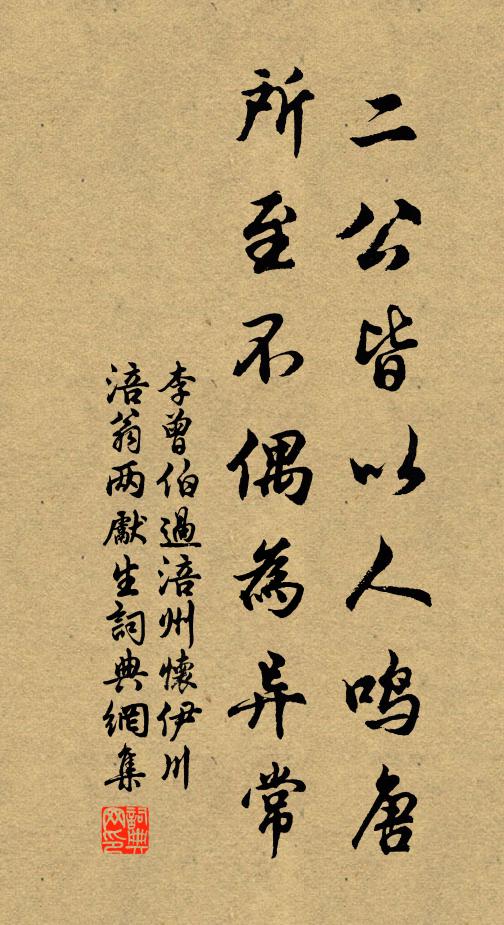 二公皆以人鸣唐
所至不偶為异常
李曾伯過涪州懷伊川
涪翁两處生詞典網集
詞典網印